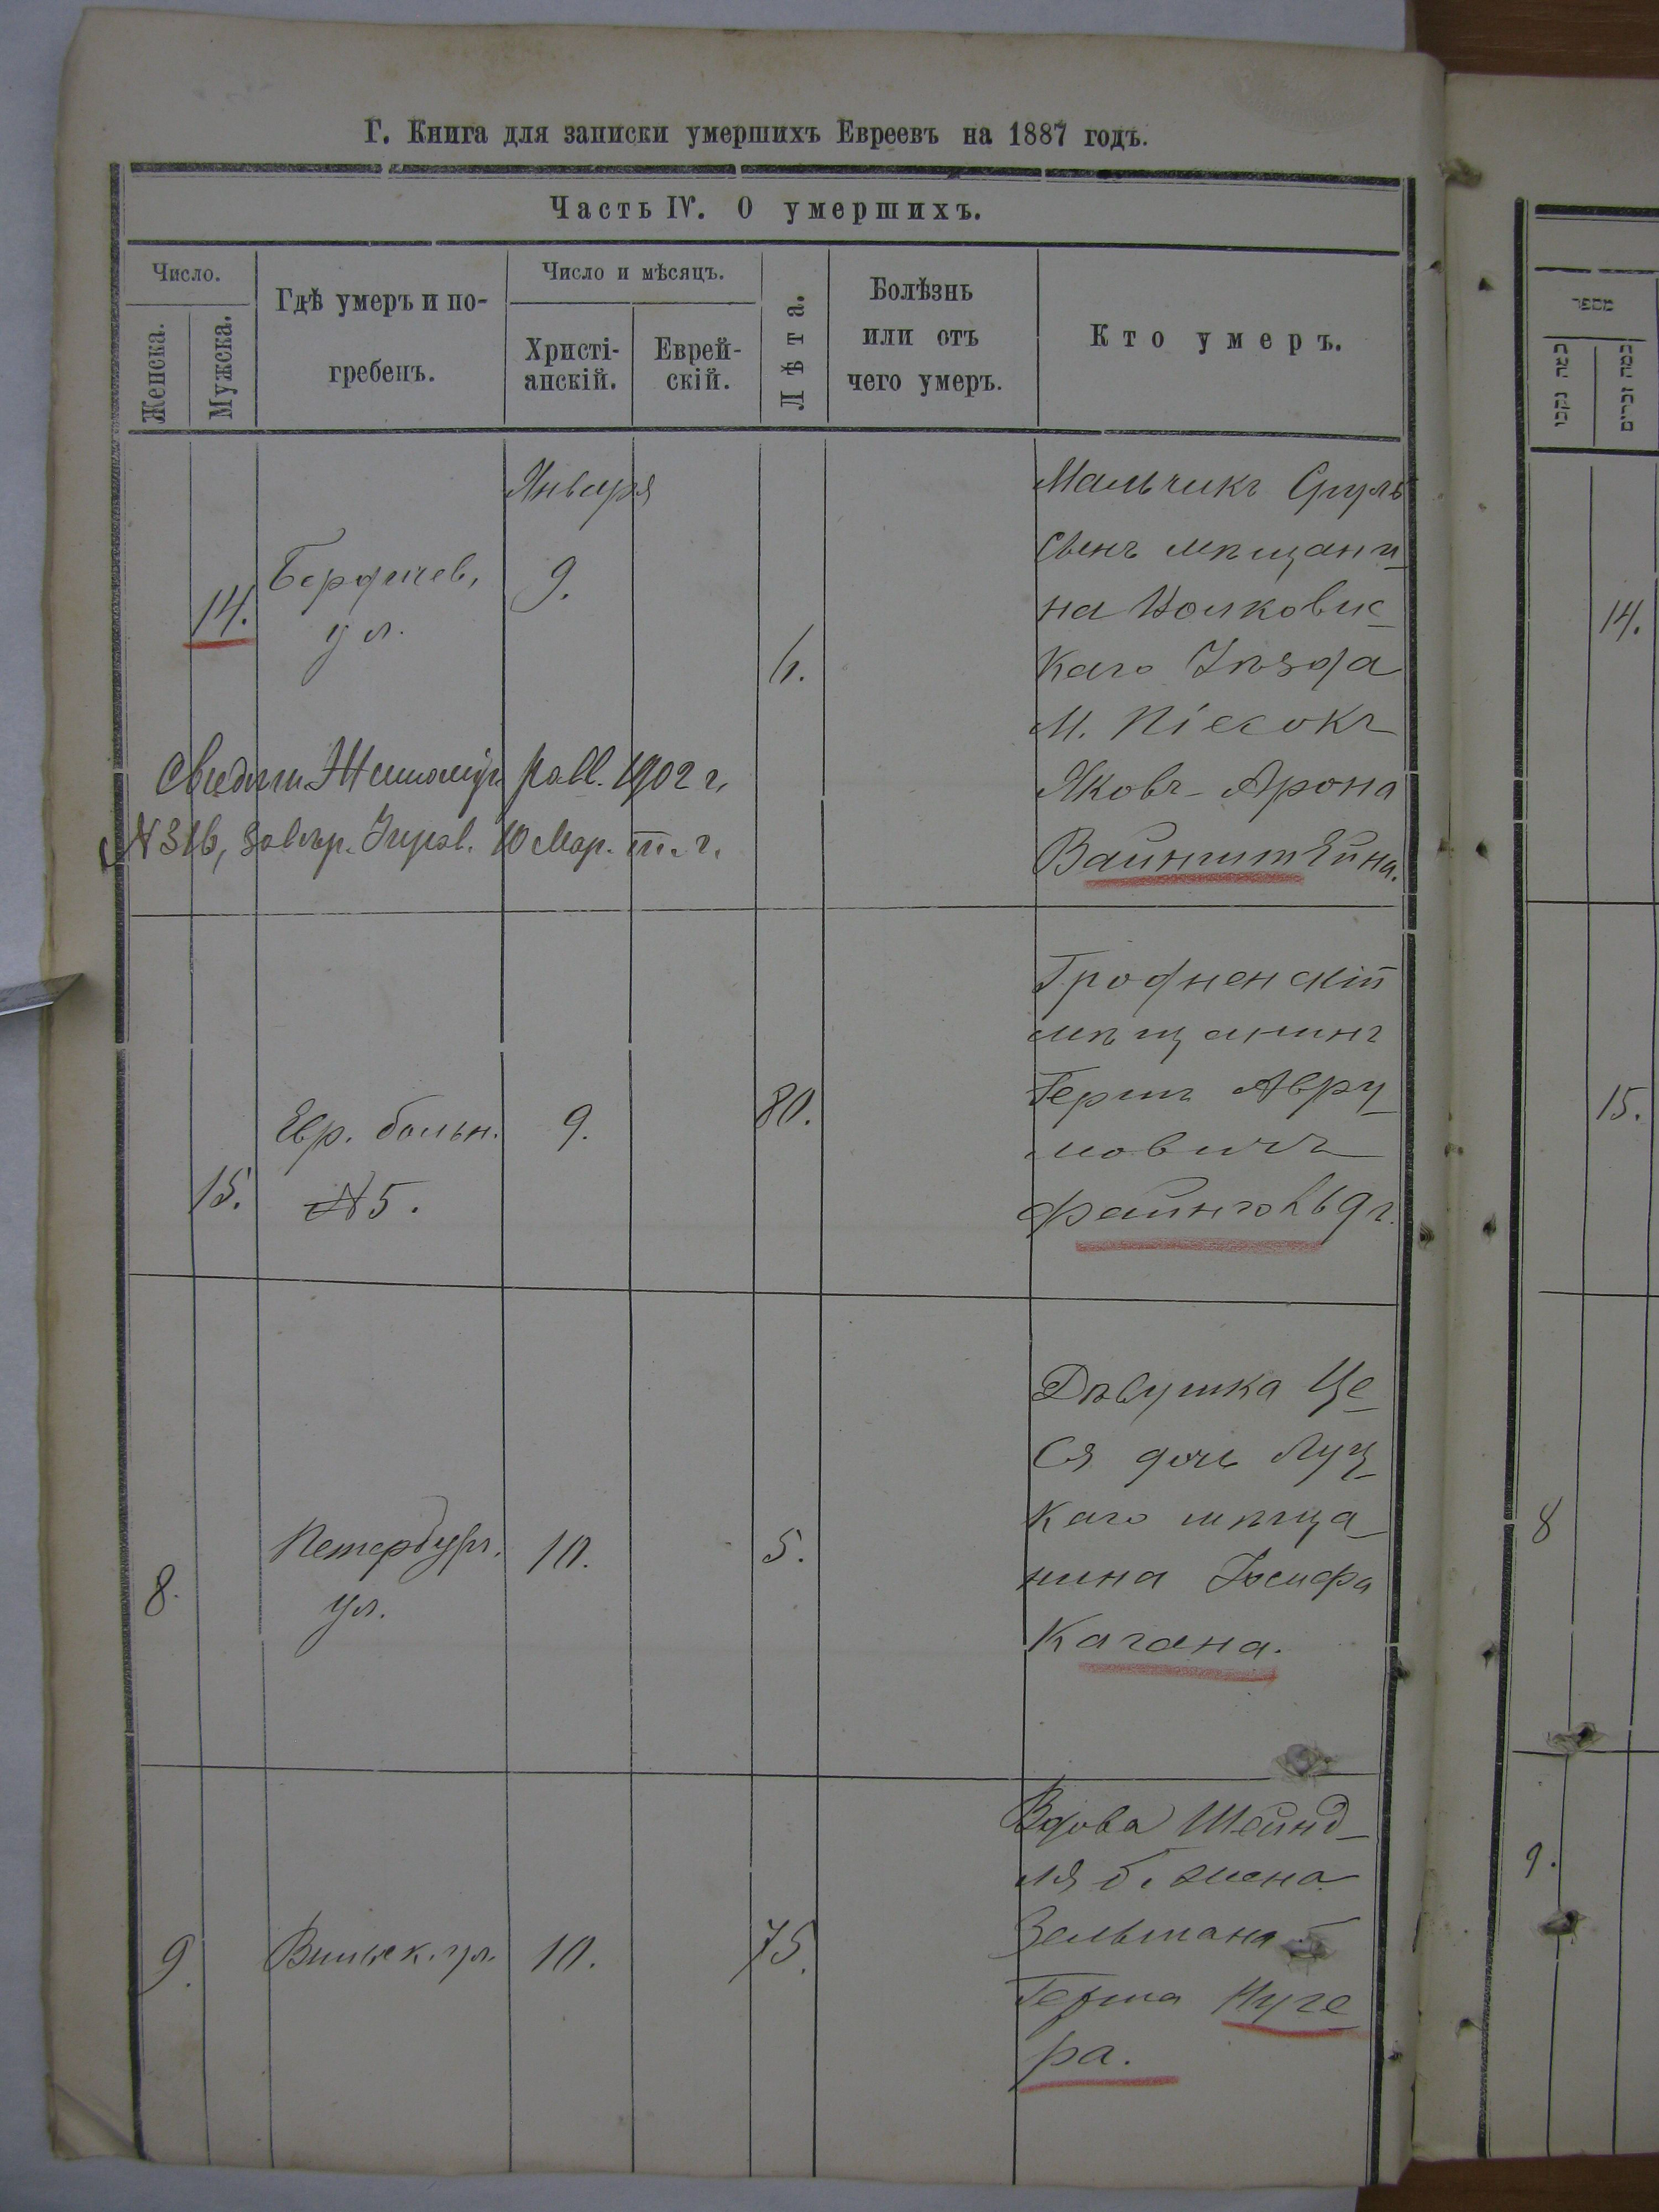 Г. Книга для записки умершихъ Евреевъ на 1887 годъ.
Часть IV. О умершихъ.
Число.
Женска.
Мужска.
Гдѣ умеръ и по-
гребенъ.
Число и мѣсяцъ.
Христі-
анскій.
Еврей-
скій.
Лѣта.
Болѣзнь
или отъ
чего умеръ.
Кто умеръ.
מספר
14.
Бердичев,
ул.
Января
9.
Мальчикъ Сруль
Сынъ мѣщани
на Волковис
каго Уѣзда
М. Піесокъ
Яковъ-Арона
Вайнштейна.
Житомір. 1902 г.
N 316, 10 Мар. т. г.
14.
15.
Евр. больн.
N 5.
9.
80.
Гродненскій
мѣщанинъ
Гершъ Авру
мовичъ
Файнгольдъ.
15.
8.
Петербург.
ул.
10.
5.
Дѣвушка Це
ся дочь Луц
каго мѣща
нина Іосифа
Кагана.
8
9.
Вильск. ул.
10.
75.
Вдова Шейнд
ля б. жена
Зельмана
Герша Нуге
ра.
9.